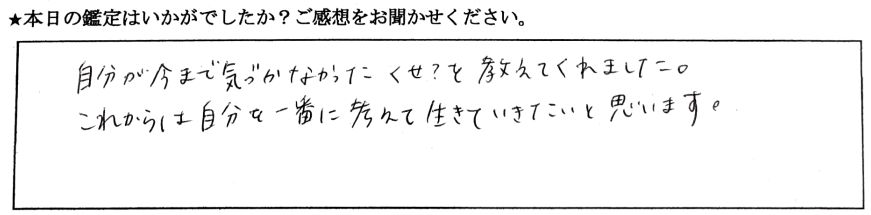 ★本日の鑑定はいかがでしたか？ご感想をお聞かせください。
自分が今まで気づかなかった くせ？を 教えてくれました。
これからは自分を一番に考えて生きていきたいと思います。